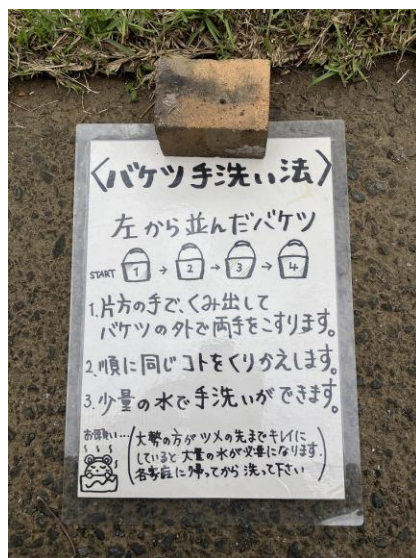 〈バケツ手洗い法〉
左から並んだバケツ
START 1 → 2 → 3 → 4
1.片方の手で、くみ出して
バケツの外で両手をこすります。
2.順に同じコトをくりかえします。
3.少量の水で手洗いができます。
お願い…
(大勢の方がツメの先までキレイに
していると大量の水が必要になります.
各家庭に帰ってから洗って下さい)